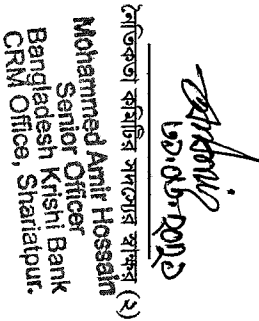 নৈতিকতা কমিটির সদস্যের স্বাক্ষর (২)
Mohammed Amir Hossain
Senior Officer
Bangladesh Krishi Bank
CRM Office, Shariatpur.